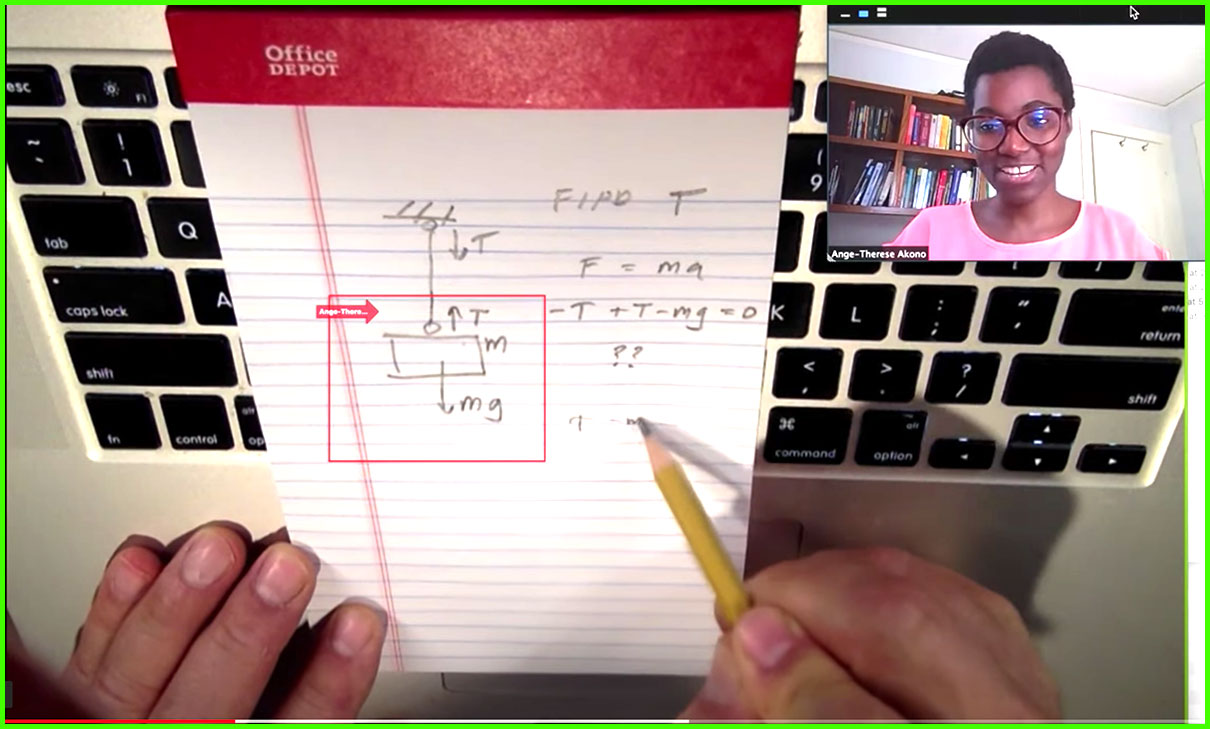 Office
DEPOT
esc
F1
~
`
!
1
tab
Q
caps lock
A
shift
fn
control
(
9
K
L
:
;
"
'
return
<
,
>
.
?
/
shift
⌘
command
alt
option
FIND T
T
F = ma
Ange-There...
T
-T + T - mg = 0
m
??
mg
T - m
Ange-Therese Akono